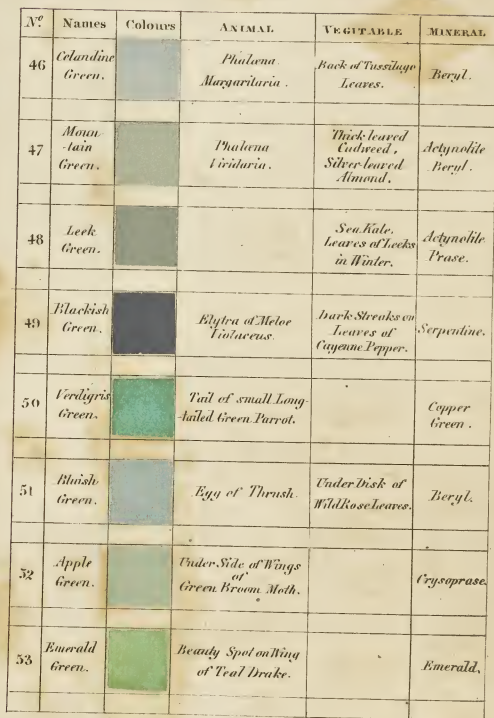 No Names Colours ANIMAL VEGITABLE MINERAL
46 Celandine Green. Phalæna Margaritaria. Back of Tussilage Leaves. Beryl.
47 Moun-tain Green. Phalæna Viridaria. Thick leaved Cudweed, Silver-leaved Almond. Actynolite Beryl.
48 Leek Green. Sea Kale. Leaves of Leeks in Winter. Actynolite Prase.
49 Blackish Green. Elytra of Meloe Violaceus. Dark Streaks on Leaves of Cayenne Pepper. Serpentine.
50 Verdigris Green. Tail of small Long-tailed Green Parrot. Copper Green.
51 Bluish Green. Egg of Thrush. Under Disk of Wild Rose Leaves. Beryl.
52 Apple Green. Under Side of Wings of Green Broom Moth. Crysoprase.
53 Emerald Green. Beauty Spot on Wing of Teal Drake. Emerald.